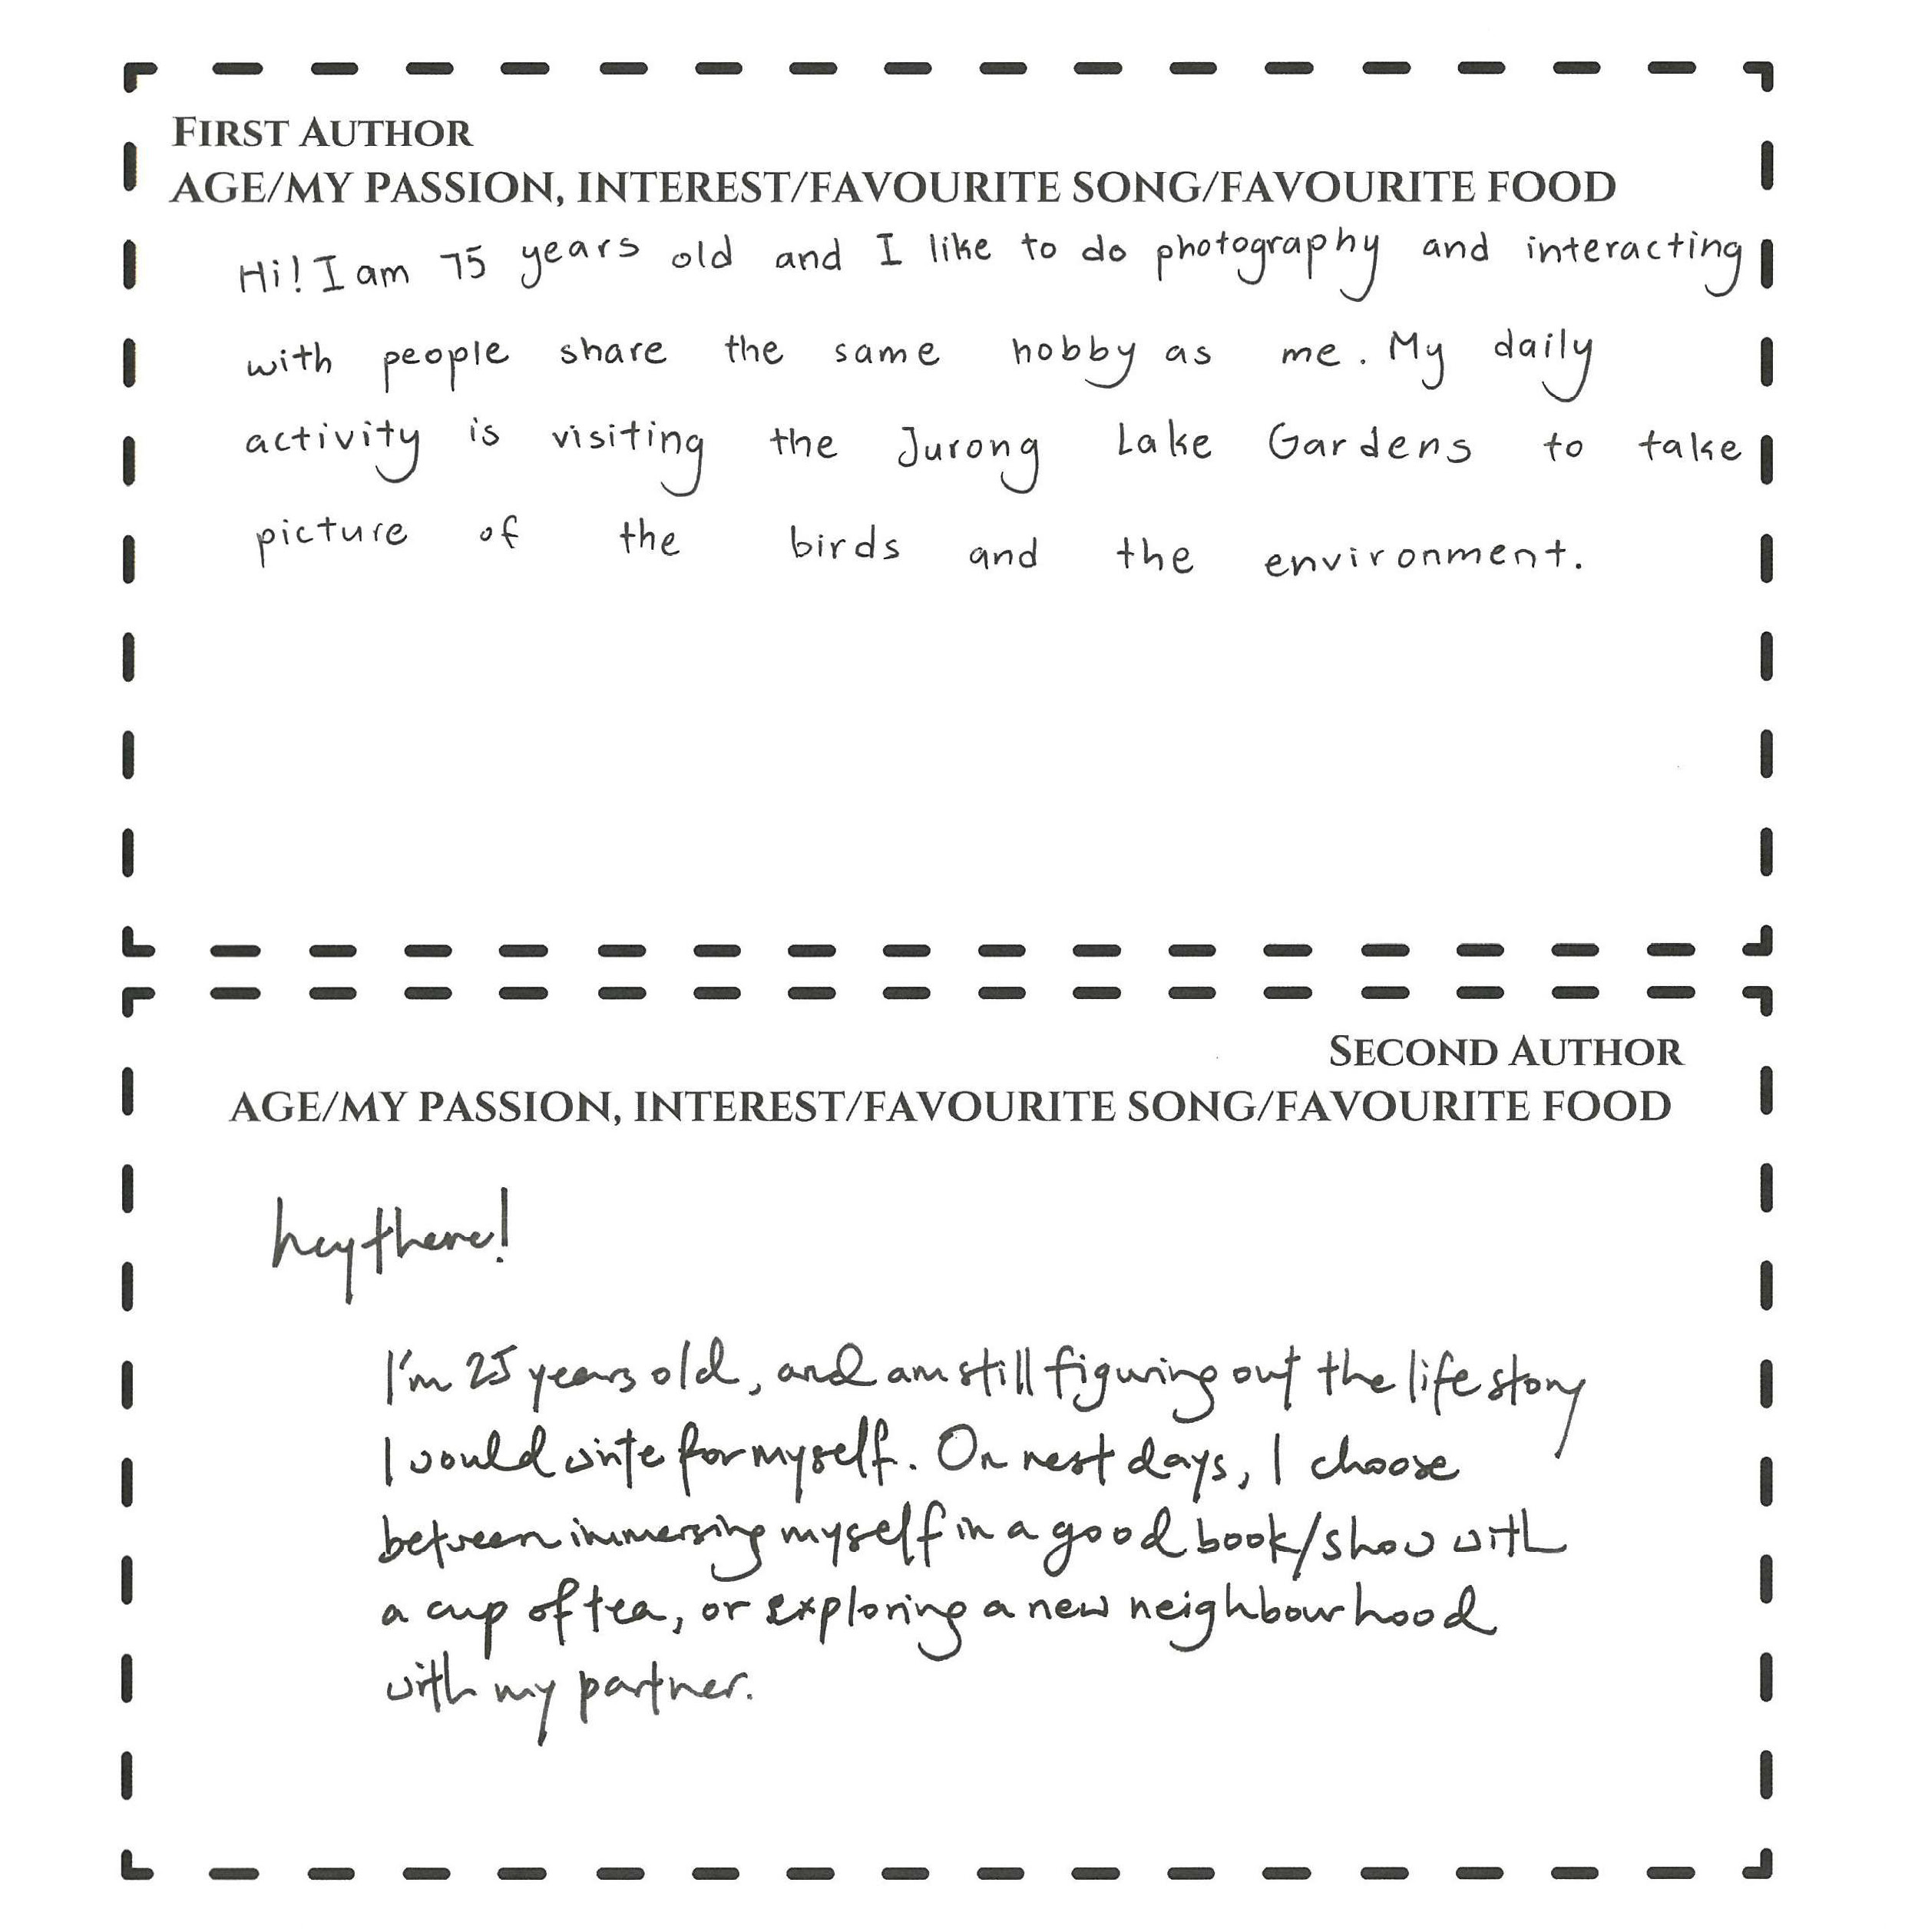 FIRST AUTHOR
AGE/MY PASSION, INTEREST/FAVOURITE SONG/FAVOURITE FOOD
Hi! I am 75 years old and I like to do photography and interacting
with people share the same hobby as me. My daily
activity is visiting the Jurong Lake Gardens to take
picture of the birds and the environment.
SECOND AUTHOR
AGE/MY PASSION, INTEREST/FAVOURITE SONG/FAVOURITE FOOD
hey there!
I'm 25 years old, and am still figuring out the life story
I would write for myself. On rest days, I choose
between immersing myself in a good book/show with
a cup of tea, or exploring a new neighbourhood
with my partner.